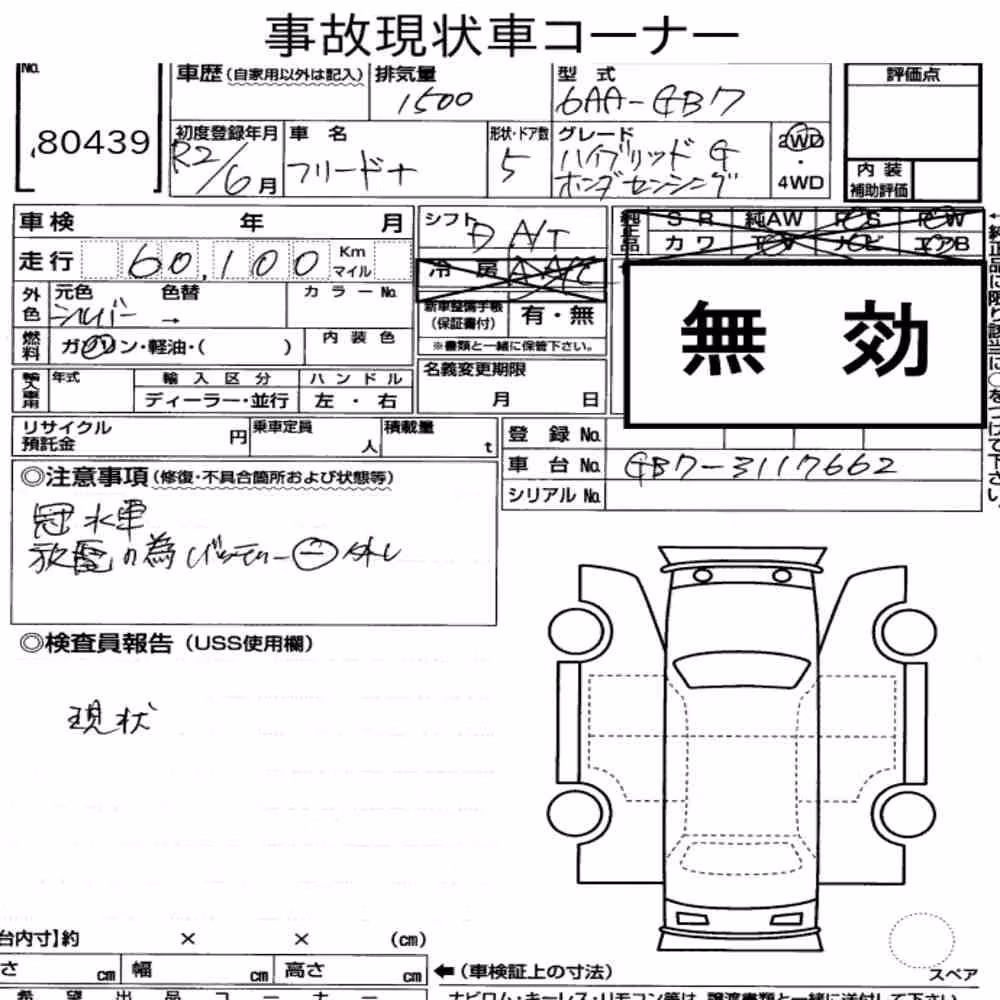 事故現状車コーナー
No.
80439
車歴(自家用以外は記入)
排気量
1500
型式
6AA-GB7
評価点
初度登録年月
R2/6月
車名
フリード+
形状・ドア数
5
グレード
ハイブリッド G
ホンダセンシング
2WD
・
4WD
内装
補助評価
車検 年 月
走行 60,100 Km
マイル
シフト
D A/T
純正品
SR 純AW PS PW
カワ TV ナビ エアB
冷房 A/C
外色
元色 色替 カラーNo.
シルバー →
新車整備手帳
(保証書付)
有・無
※書類と一緒に保管下さい。
無効
燃料
ガソリン・軽油・( )
内装色
年式
輸入区分
ハンドル
ディーラー・並行
左・右
名義変更期限
月 日
リサイクル
預託金
円
乗車定員
人
積載量
t
登録No.
車台No. GB7-3117662
シリアルNo.
◎注意事項(修復・不具合箇所および状態等)
冠水車
放電の為バッテリー㊀外し
◎検査員報告(USS使用欄)
現状
台内寸】約 × × (cm)
さ cm 幅 cm 高さ cm
←(車検証上の寸法)
スペア
希望出品コーナー